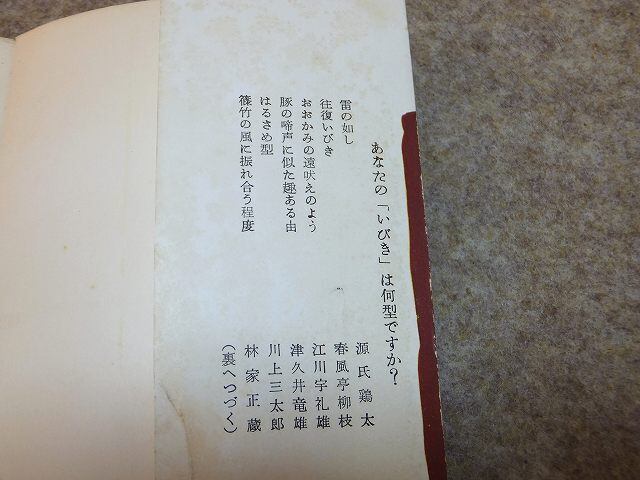 あなたの「いびき」は何型ですか？
雷の如し　源氏鶏太
往復いびき　春風亭柳枝
おおかみの遠吠えのよう　江川宇礼雄
豚の啼声に似た趣ある由　津久井竜雄
はるさめ型　川上三太郎
篠竹の風に振れ合う程度　林家正蔵
（裏へつづく）